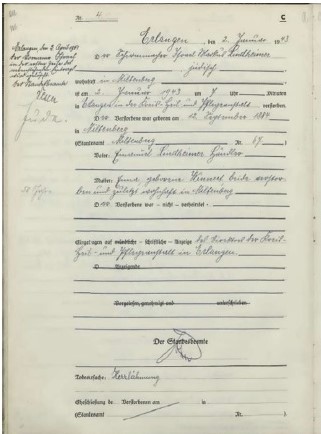 Nr. 4
C
Erlangen, den 2. Januar 1943
D er Schwammacher Israel Markus Lindheimer
jüdisch
wohnhaft in Miltenberg
ist am 2. Januar 1943 um 7 Uhr Minuten
in Erlangen in der Kreis-Heil- und Pflegeanstalt verstorben.
D er Verstorbene war geboren am 12. September 1884
in Miltenberg
(Standesamt Miltenberg Nr. 67)
Vater: Emanuel Lindheimer Händler
Mutter: geborene beide verstor-
ben und zuletzt wohnhaft in Miltenberg
D er Verstorbene war – nicht – verheiratet
Eingetragen auf mündliche – schriftliche – Anzeige des Direktors der Kreis-
Heil- und Pflegeanstalt in Erlangen.
D Anzeigende
Vorgelesen, genehmigt und unterschrieben
Der Standesbeamte
Todesursache: Herzlähmung
Eheschließung de Verstorbenen am in
(Standesamt Nr. )
Erlangen, den 2. April
Der Standesbeamte
Jude
58 Jahre